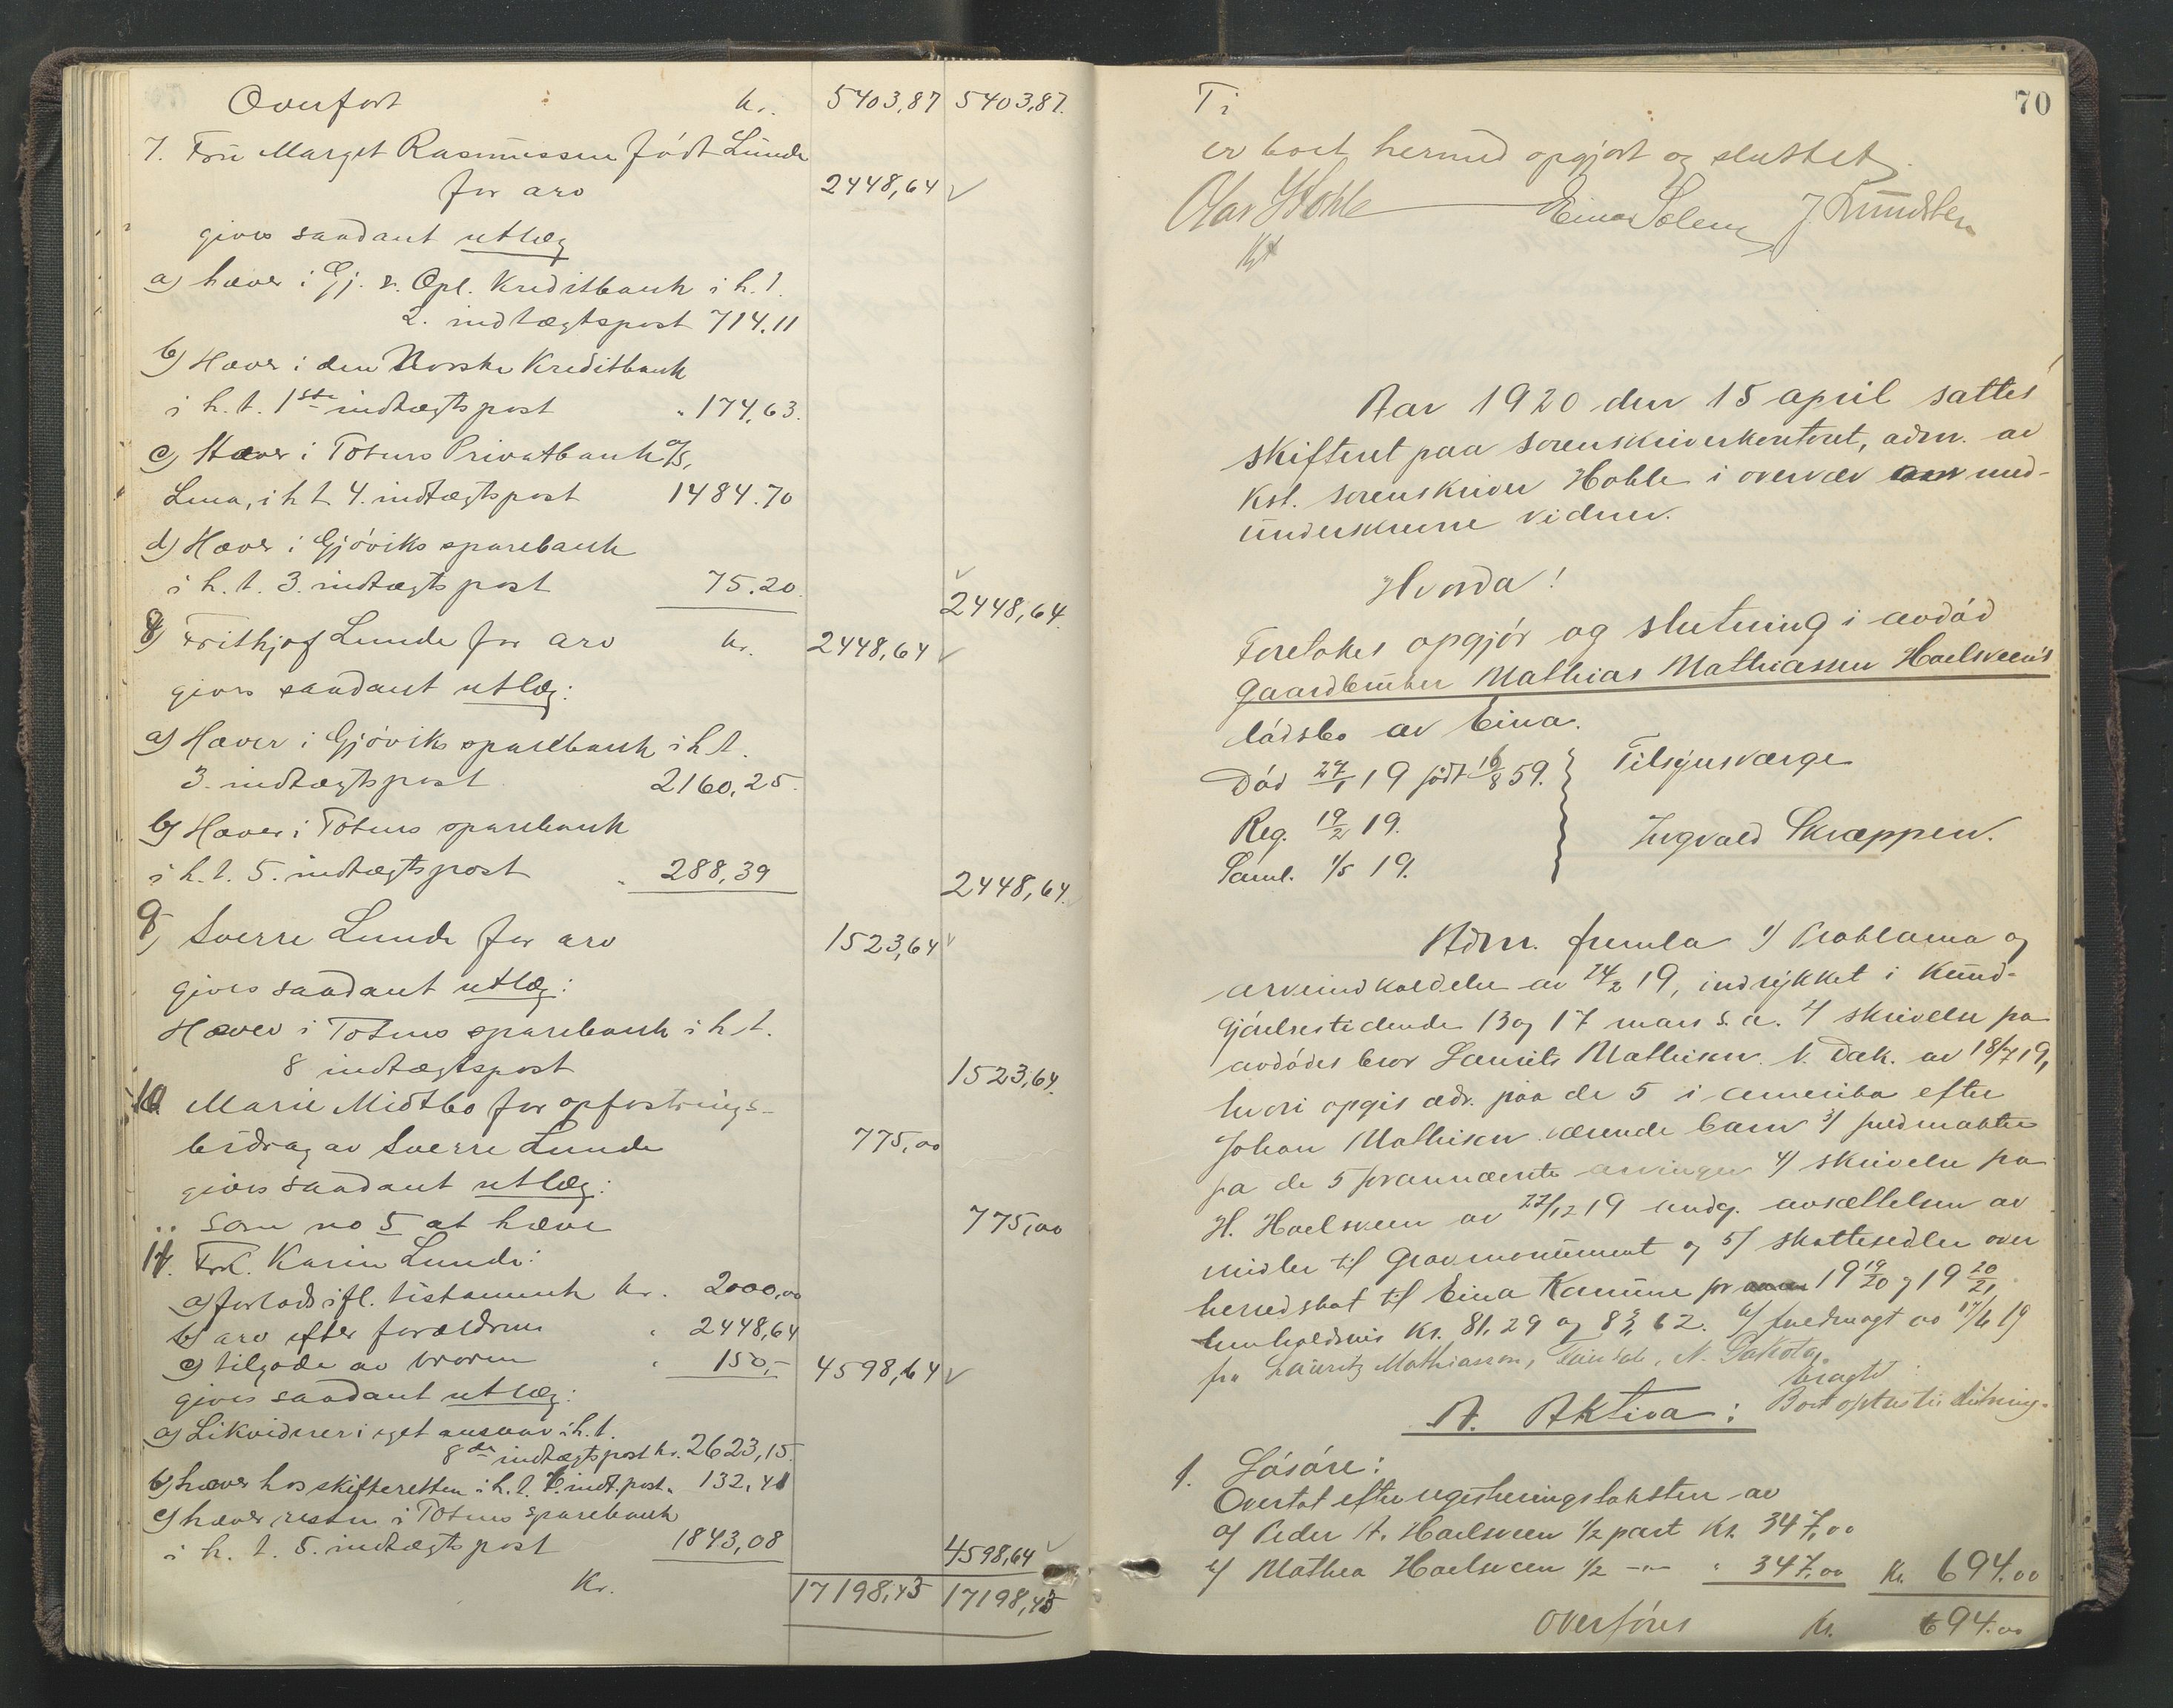 Overført kr. 5403,87 5403,87.
7. Fru Marget Rasmussen født Lunde
for arv 2448,64
gives saadant utlæg
a) hæver i Gj. & Opl. Kreditbank i h.t.
2. indtægtspost 714.11
b) Hæver i den Norske Kreditbank
i h.t. 1ste indtægtspost " 174,63.
c) Hæver i Totens Privatbank a/s,
Lena, i h t 4. indtægtspost 1484.70
d) Hæver i Gjøviks sparebank
i h.t. 3. indtægtspost 75.20.
2448,64.
8) Frithjof Lunde for arv kr. 2448,64
gives saadant utlæg:
a) Hæver i Gjøviks sparebank i h t.
3. indtægtspost 2160,25.
b) Hæver i Totens sparebank
i h.t. 5. indtægtspost " 288,39
2448,64.
9) Sverre Lunde for arv 1523,64
gives saadant utlæg:
Hæver i Totens sparebank i h.t.
8 indtægtspost 1523,64.
10. Marie Midtbo for opfostrings-
bidrag av Sverre Lunde 775,00
gives saadant utlæg:
som no 5 at hæve 775,00
11. Frk. Karin Lunde:
a) forlods ifl. testamente kr. 2000,00
b) arv efter forældrene " 2448,64
c) tilgode av broren " 150,- 4598,64
gives saadant utlæg:
a) Likviderer i eget ansvar i h.t.
8de indtægtspost kr. 2623,15.
b) hæver hos skifteretten i h.t. 6. indt.post. " 132,41
c) hæver resten i Totens sparebank
i h.t. 5. indtægtspost 1843,08
4598,64
Kr. 17198,43 17198,43
70
Ti
er boet hermed opgjort og sluttet.
Olav Hohle Einar Solem J Lundsten
Kst
Aar 1920 den 15 april sattes
skifteret paa sorenskriverkontoret, adm. av
Kst. sorenskriver Hohle i overvær av med-
underskrevne vidner.
Hvorda!
Foretokes opgjør og slutning i avdød
Gaardbruker Mathias Mathiassen Haelsveen's
dødsbo av Eina.
Død 27/1 19 født 16/8 59. Tilsynsværge
Reg. 19/2 19. Ingvald Skræppen.
Saml. 1/5 19.
Adm. fremla 1) Proklama og
arveindkaldelse av 24/2 19, indrykket i Kund-
gjørelsestidende 13 og 17 mars s.a. 2) skrivelse fra
avdødes bror Laurits Mathisen N. Dak. av 18/7 19,
hvori opgis adr. paa de 5 i Amerika efter
Johan Mathisen værende barn 3) fuldmakter
fra de 5 forannævnte arvinger 4) skrivelse fra
H. Haelsveen av 27/12 19 andg. avsættelsen av
midler til Gravmonument og 5) skattesedler over
herredskat til Eina Kommune for 19 19/20 og 19 20/21
henholdsvis Kr. 81,29 og 83,62. 6) fuldmagt av 17/6 19
fra Lauritz Mathiassen, Fairdale, N. Dakota.
Boet optas til slutning.
A. Aktiva:
1. Løsøre:
Overtat efter registreringstaksten av
a) Peder A. Haelsveen 1/2 part Kr. 347,00
b) Mathea Haelsveen 1/2 -"- " 347,00 Kr. 694.00
Overføres Kr. 694.00